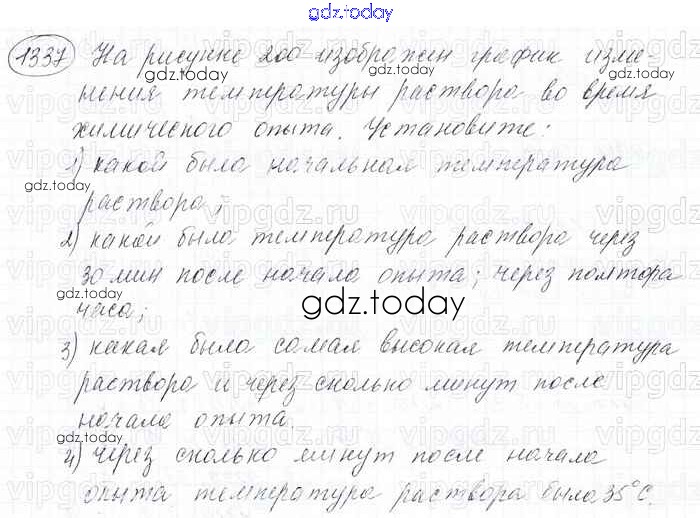 gdz.today
1337 На рисунке 200 изображен график изме-
нения температуры раствора во время
химического опыта. Установите:
1) какой была начальная температура
раствора;
2) какой была температура раствора через
30 мин после начала опыта; через полтора
часа;
3) какая была самая высокая температура
раствора и через сколько минут после
начала опыта
4) через сколько минут после начала
опыта температура раствора была 35°С.
gdz.today
gdz.today
gdz.today
gdz.today
gdz.today
gdz.today
gdz.today
gdz.today
gdz.today
vipgdz.ru